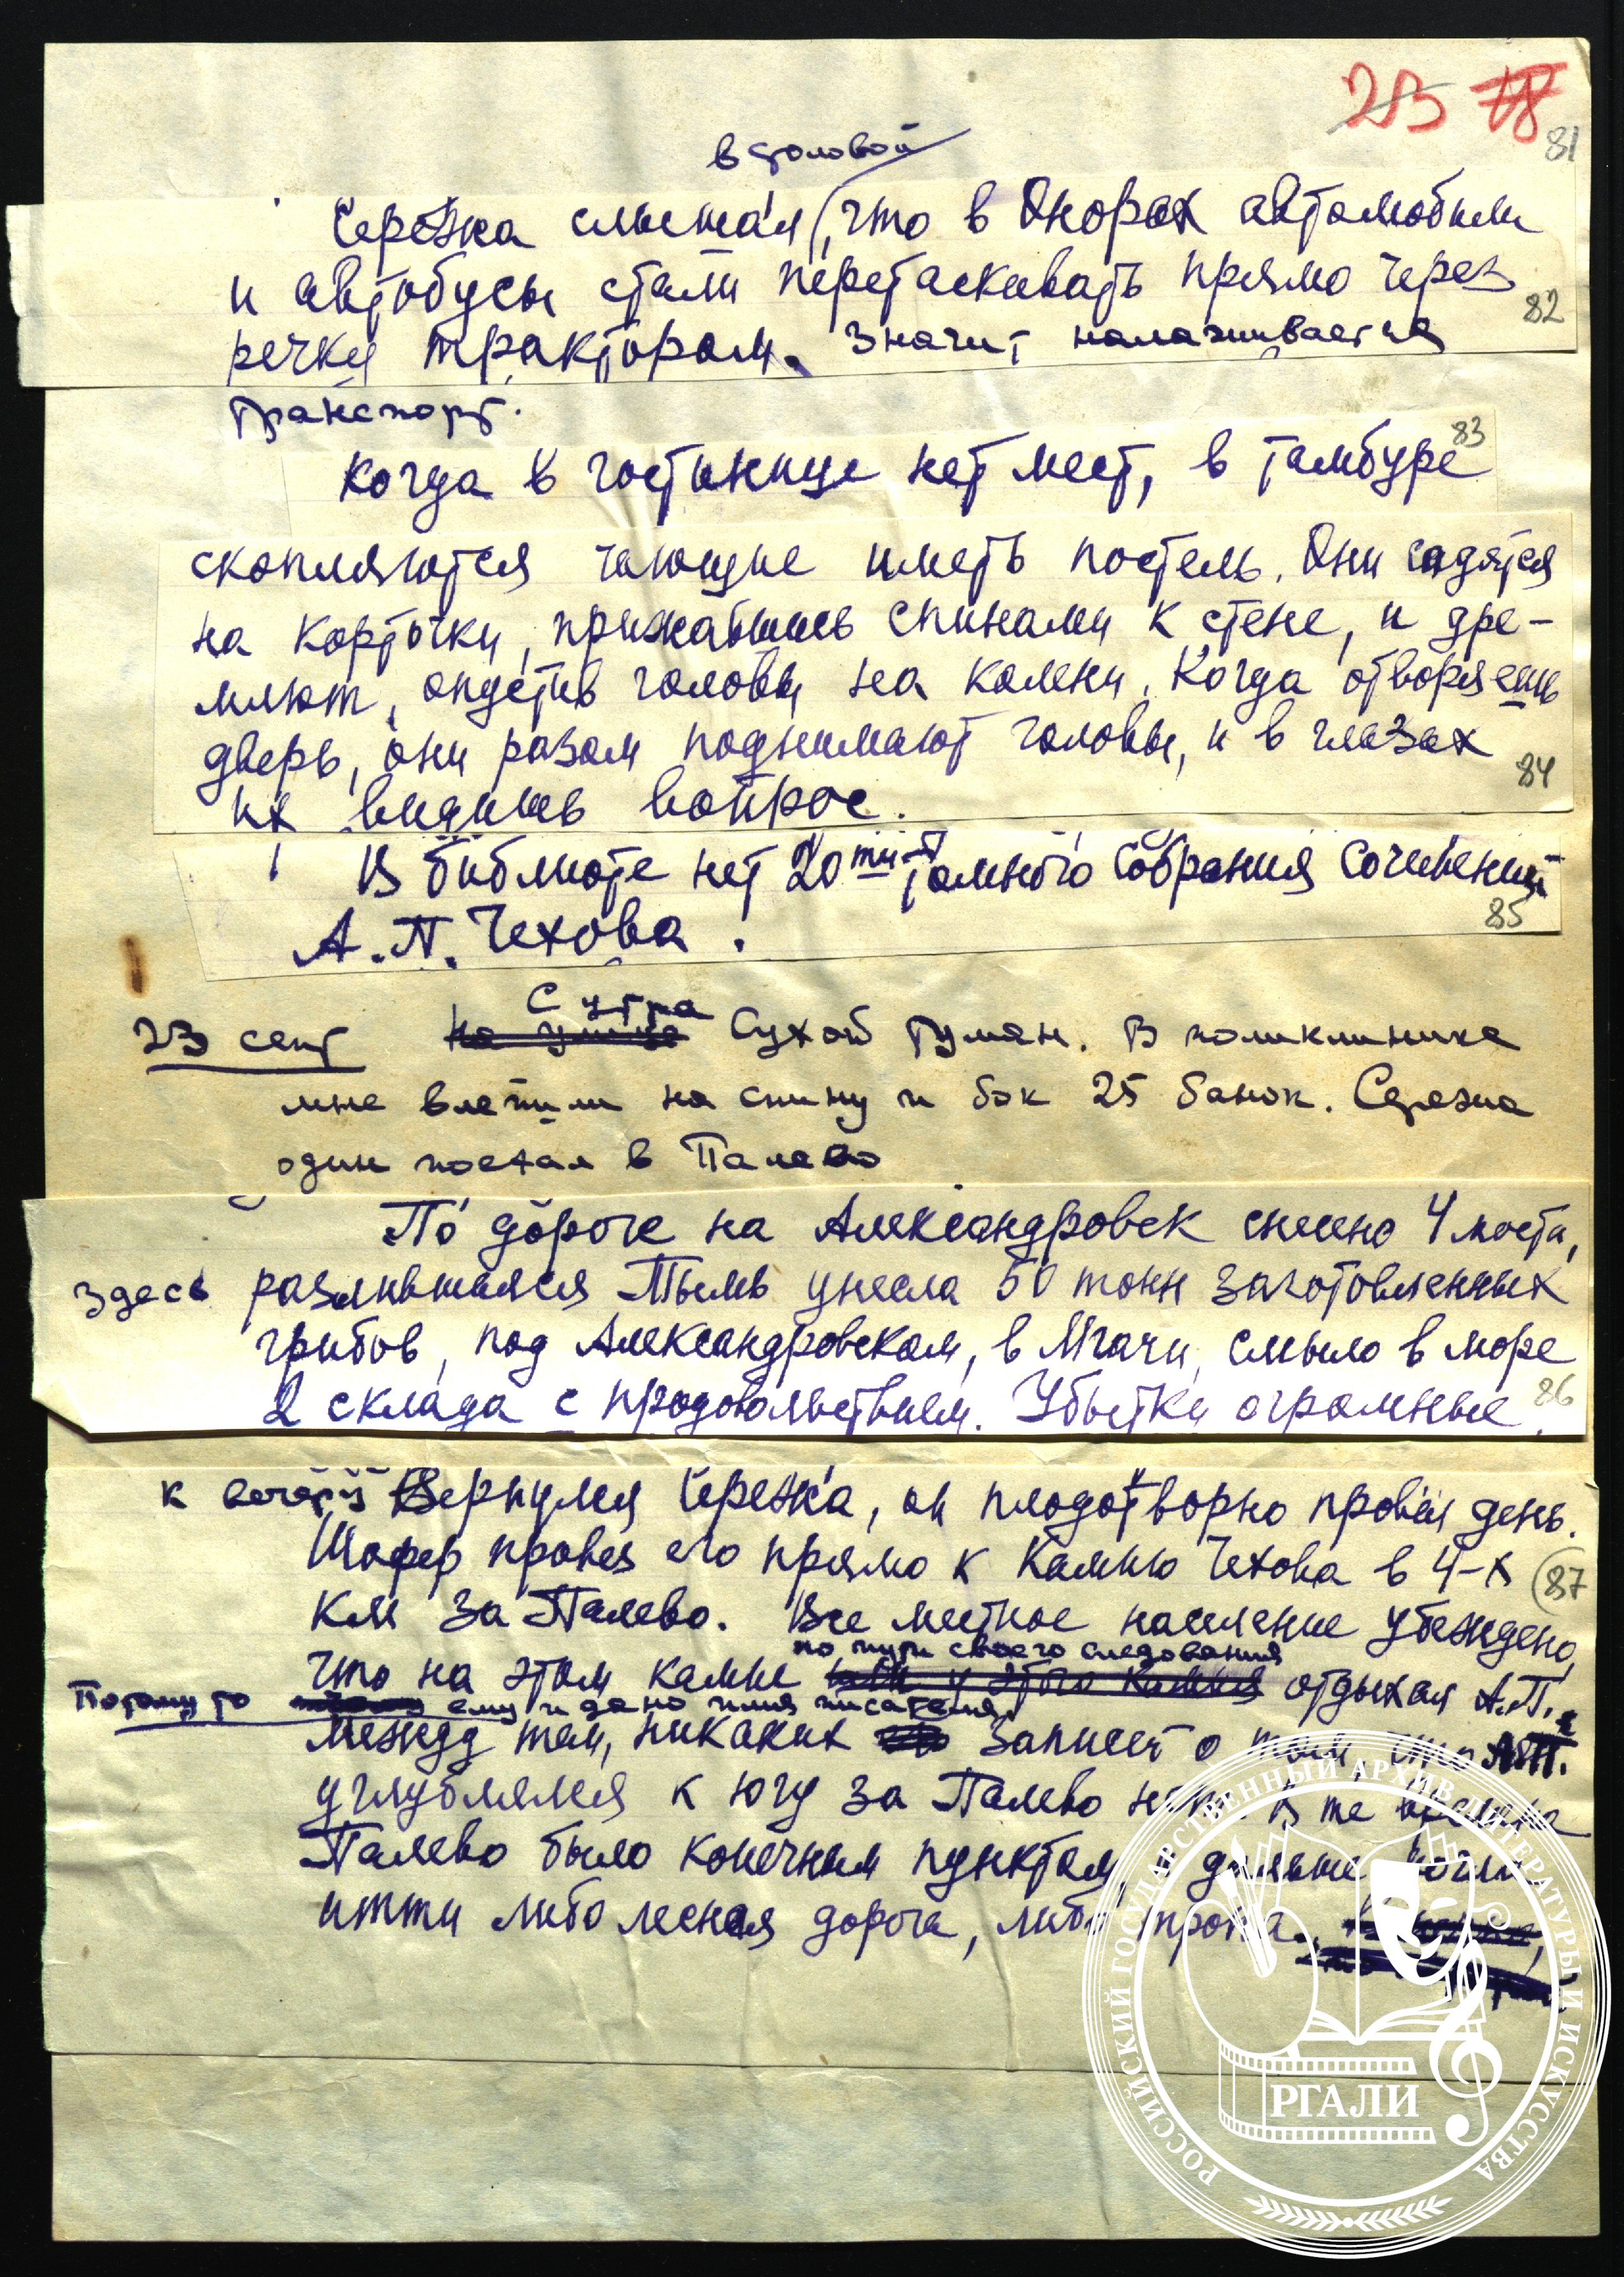 23 78
81
в столовой
Сережка слышал, что в Онорах автомобили
и автобусы стали перетаскивать прямо через
82
речку трактором. Значит налаживается
транспорт.
83
Когда в гостинице нет мест, в тамбуре
скопляются чающие иметь постель. Они садятся
на корточки, прижавшись спинами к стене, и дре-
млют, опустив головы на колени. Когда отворяешь
дверь, они разом поднимают головы, и в глазах
84
их видишь вопрос.
В библиоте нет 20ти-томного собрания сочинений
85
А.П. Чехова.
С утра
23 сент На улице Сухой туман. В поликлинике
мне влепили на спину и бок 25 банок. Сережа
один поехал в Палево
По дороге на Александровск снесено 4 моста,
здесь разлившаяся Тымь унесла 50 тонн заготовленных
грибов, под Александровском, в Мгачи, смыло в море
2 склада с продовольствием. Убытки огромные.
86
к вечеру Вернулся Сережка, он плодотворно провел день.
Шофер провел его прямо к Камню Чехова в 4-х
87
км за Палево. Все местное население убеждено,
по пути своего следования
что на этом камне у этого камня отдыхал А.П.
Потому то ему и дано имя писателя.
Между тем, никаких записей о том, что А.П.
углублялся к югу за Палево нет. В те времена
Палево было конечным пунктом, дальше могли
итти либо лесная дорога, либо тропа.
РОССИЙСКИЙ ГОСУДАРСТВЕННЫЙ АРХИВ ЛИТЕРАТУРЫ И ИСКУССТВА
РГАЛИ